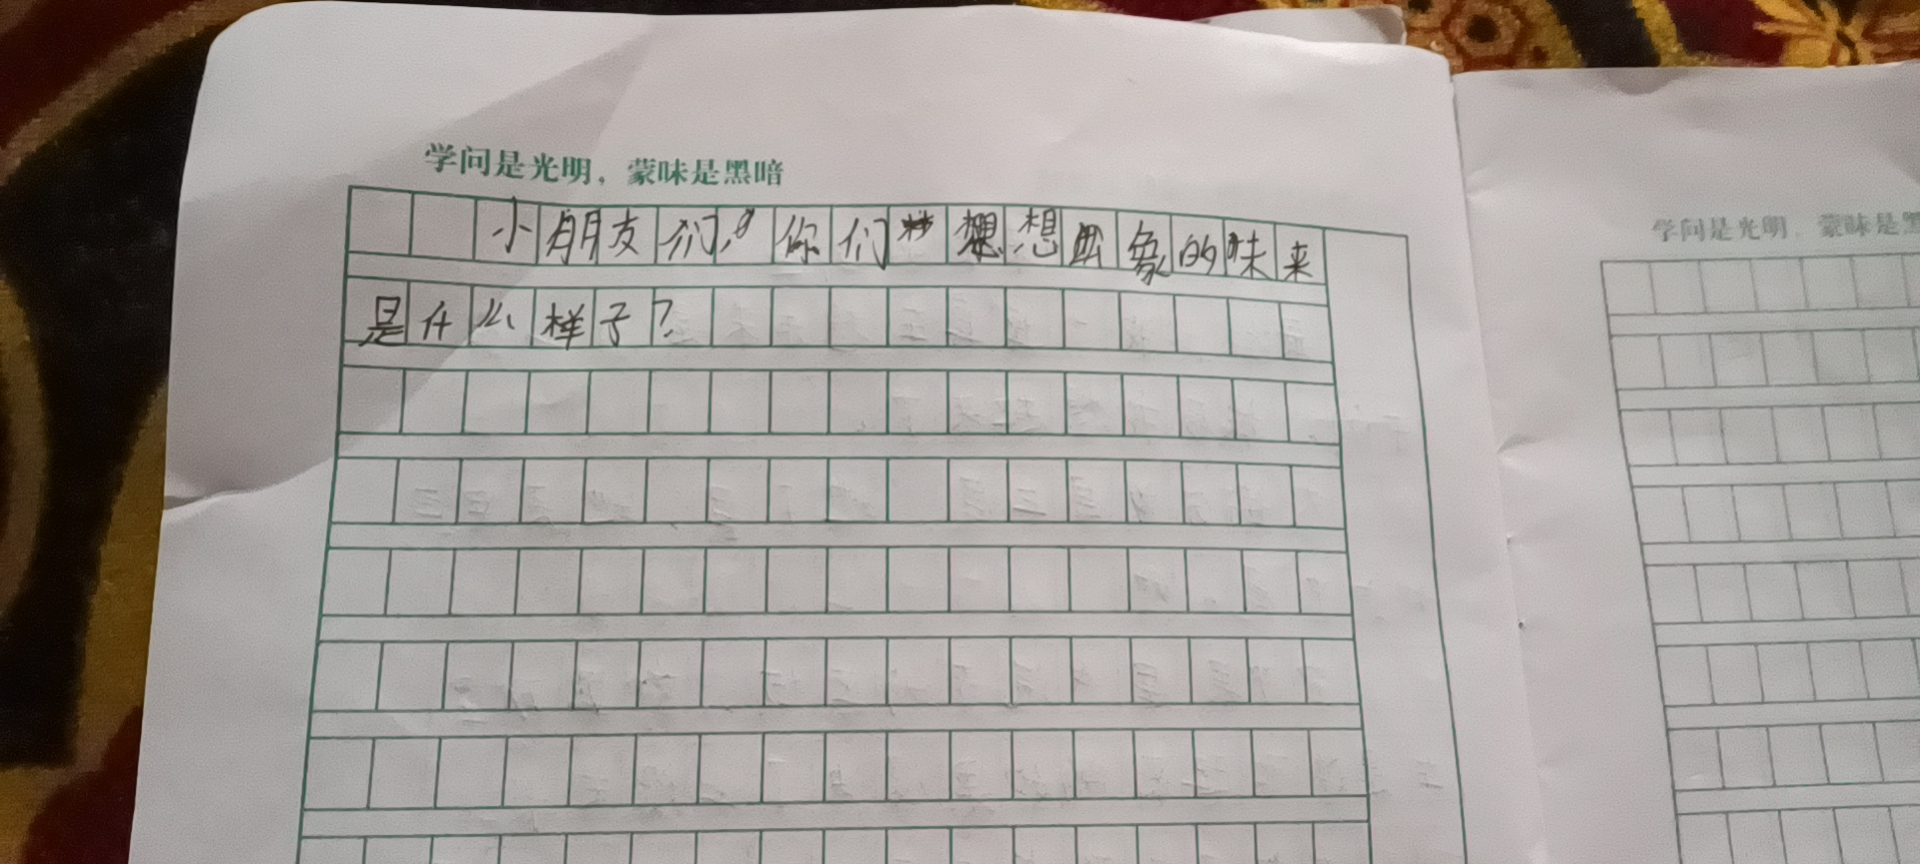 学问是光明，蒙昧是黑暗
小朋友们，你们想想象的味来
是什么样子？
学问是光明，蒙昧是黑